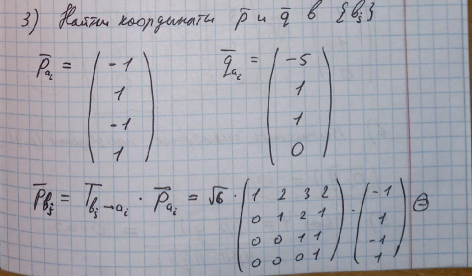 3) Найти координаты p̅ и q̅ в {bⱼ}
p̅ₐᵢ = (-1 1 -1 1) q̅ₐᵢ = (-5 1 1 0)
p̅bⱼ = T̅bⱼ→aᵢ · p̅ₐᵢ = √6 · (1 2 3 2
0 1 2 1
0 0 1 1
0 0 0 1) · (-1
1
-1
1) ⊖